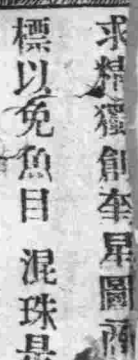 求精獨創奎星圖商
標以免魚目混珠是